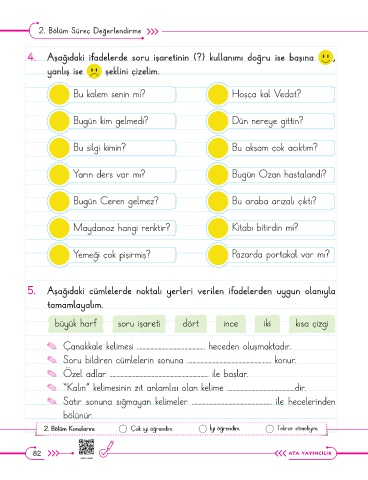 2. Bölüm Süreç Değerlendirme
4. Aşağıdaki ifadelerde soru işaretinin (?) kullanımı doğru ise başına ,
yanlış ise şeklini çizelim.
Bu kalem senin mi?
Hoşça kal Vedat?
Bugün kim gelmedi?
Dün nereye gittin?
Bu silgi kimin?
Bu akşam çok acıktım?
Yarın ders var mı?
Bugün Ozan hastalandı?
Bugün Ceren gelmez?
Bu araba arızalı çıktı?
Maydanoz hangi renktir?
Kitabı bitirdin mi?
Yemeği çok pişirmiş?
Pazarda portakal var mı?
5. Aşağıdaki cümlelerde noktalı yerleri verilen ifadelerden uygun olanıyla
tamamlayalım.
büyük harf soru işareti dört ince iki kısa çizgi
Çanakkale kelimesi .................... heceden oluşmaktadır.
Soru bildiren cümlelerin sonuna .................... konur.
Özel adlar .................... ile başlar.
"Kalın" kelimesinin zıt anlamlısı olan kelime ....................dir.
Satır sonuna sığmayan kelimeler .................... ile hecelerinden
bölünür.
2. Bölüm Konularını: Çok iyi öğrendim. İyi öğrendim. Tekrar etmeliyim.
82
ATA YAYINCILIK